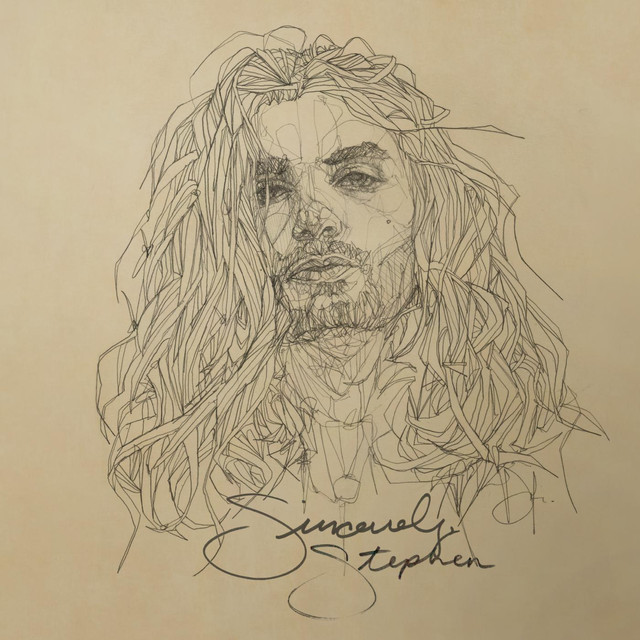 Sincerely,
Stephen